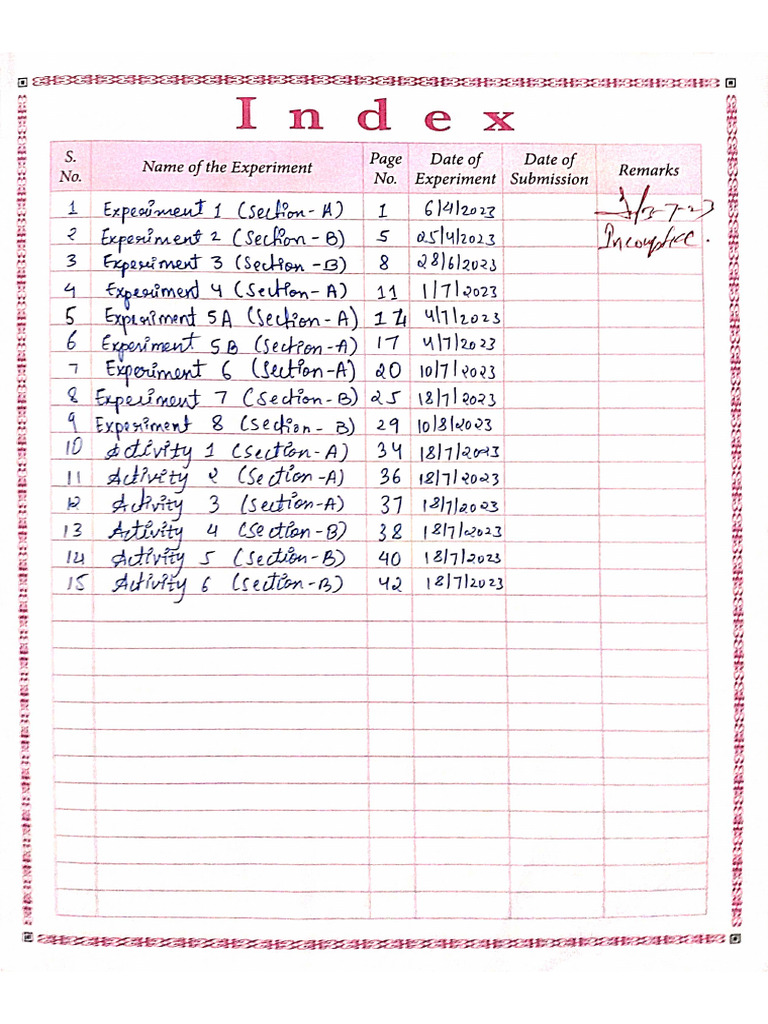 Index
S. No. Name of the Experiment Page No. Date of Experiment Date of Submission Remarks
1 Experiment 1 (Section-A) 1 6/4/2023
2 Experiment 2 (Section-B) 5 25/4/2023
3 Experiment 3 (Section-B) 8 28/6/2023
4 Experiment 4 (Section-A) 11 1/7/2023
5 Experiment 5A (Section-A) 14 4/7/2023
6 Experiment 5B (Section-A) 17 4/7/2023
7 Experiment 6 (Section-A) 20 10/7/2023
8 Experiment 7 (Section-B) 25 18/7/2023
9 Experiment 8 (Section-B) 29 10/8/2023
10 Activity 1 (Section-A) 34 18/7/2023
11 Activity 2 (Section-A) 36 18/7/2023
12 Activity 3 (Section-A) 37 18/7/2023
13 Activity 4 (Section-B) 38 18/7/2023
14 Activity 5 (Section-B) 40 18/7/2023
15 Activity 6 (Section-B) 42 18/7/2023